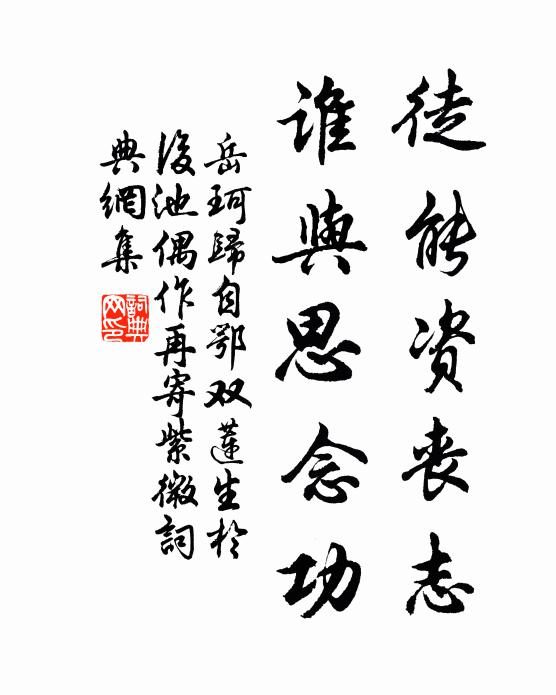 徒能资丧志
谁与思念功
岳珂歸自鄂双蓮生於
後池偶作再寄紫微詞
典網集
詞典
网印